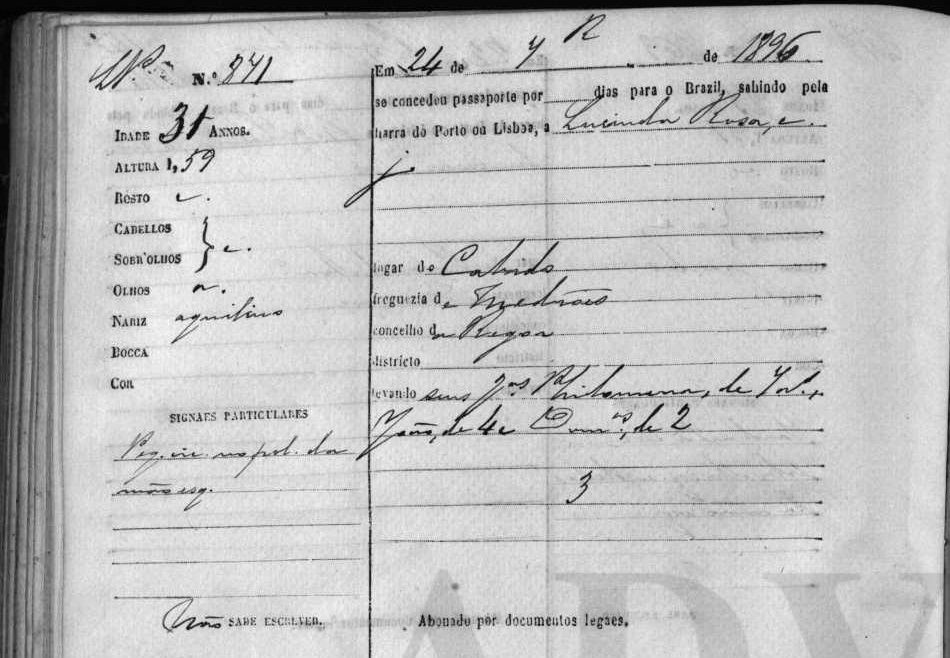 N.º 871
IDADE 31 ANNOS.
ALTURA 1,59
ROSTO c.
CABELLOS
SOBR'OLHOS } c.
OLHOS
NARIZ aquilino
BOCCA
COR
SIGNAES PARTICULARES
Peq. cic. no pol. da
mão esq.
Não SABE ESCREVER.
Em 24 de de 1896
se concedeu passaporte por dias para o Brazil, sahindo pela
barra do Porto ou Lisboa, a Lucinda Rosa, c.
j.
logar de
freguezia de Medrões
concelho da Regoa
districto
levando seus f.os Philomena, de
João, de 4 e de 2
3
Abonado por documentos legaes.
ADV